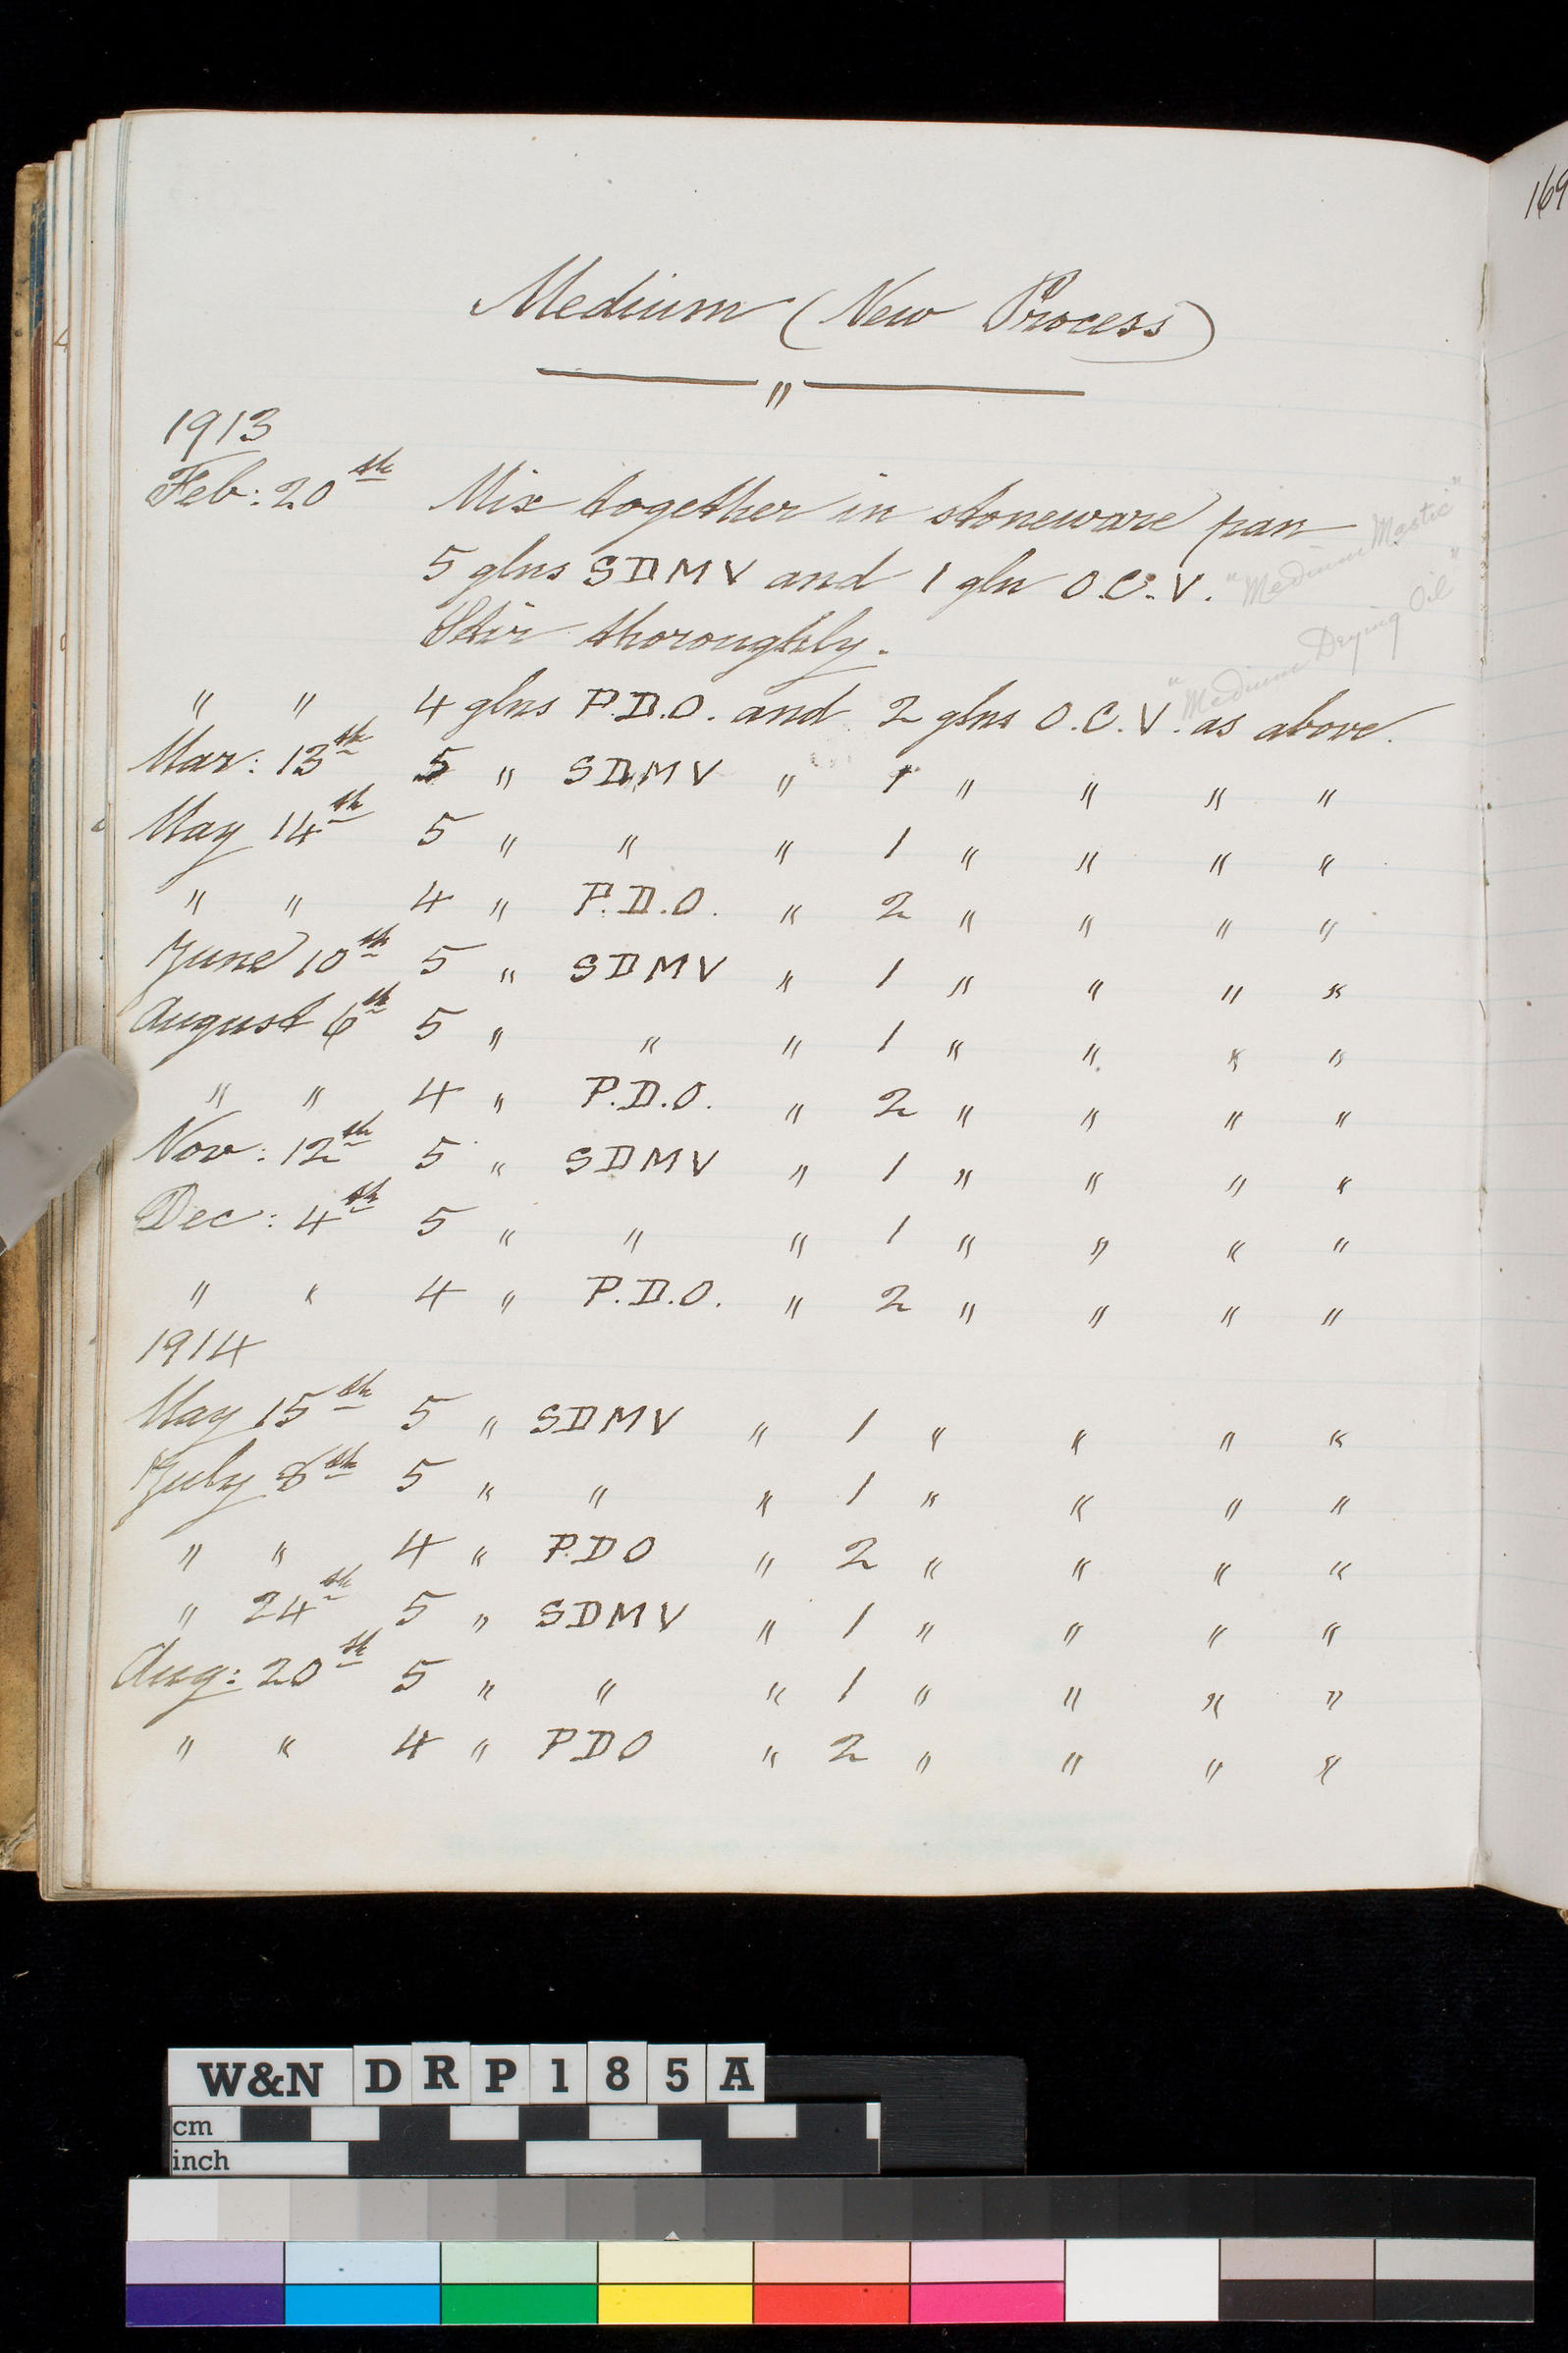 169
Medium (New Process)
"
1913
Feb: 20th Mix together in stoneware pan
5 glns SDMV and 1 gln O.C.V. "Medium Mastic"
Stir thoroughly.
" " 4 glns P.D.O. and 2 glns O.C.V. as above. "Medium Drying Oil"
Mar: 13th 5 " SDMV " 1 " " " "
May 14th 5 " " " 1 " " " "
" " 4 " P.D.O. " 2 " " " "
June 10th 5 " SDMV " 1 " " " "
August 6th 5 " " " 1 " " " "
" " 4 " P.D.O. " 2 " " " "
Nov: 12th 5 " SDMV " 1 " " " "
Dec: 4th 5 " " " 1 " " " "
" " 4 " P.D.O. " 2 " " " "
1914
May 15th 5 " SDMV " 1 " " " "
July 8th 5 " " " 1 " " " "
" " 4 " P.D O " 2 " " " "
" 24th 5 " SDMV " 1 " " " "
Aug: 20th 5 " " " 1 " " " "
" " 4 " PDO " 2 " " " "
W&N DRP185A
cm
inch